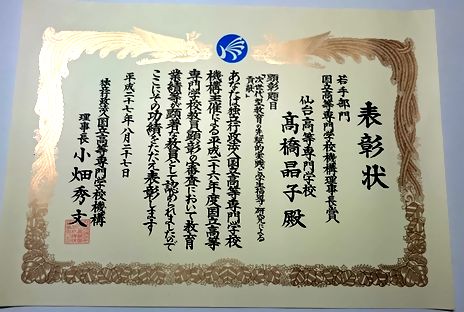 表彰状
若手部門
国立高等専門学校機構理事長賞
仙台高等専門学校
髙橋晶子殿
顕彰題目
「次世代型教育の系統的実践と学生指導・研究による
貢献」
あなたは独立行政法人国立高等専門学校
機構主催による平成二十六年度国立高等
専門学校教員顕彰の審査において教育
業績等が顕著な教員として認められましたので
ここにその功績をたたえ表彰します
平成二十七年八月二十七日
独立行政法人国立高等専門学校機構
理事長小畑秀文